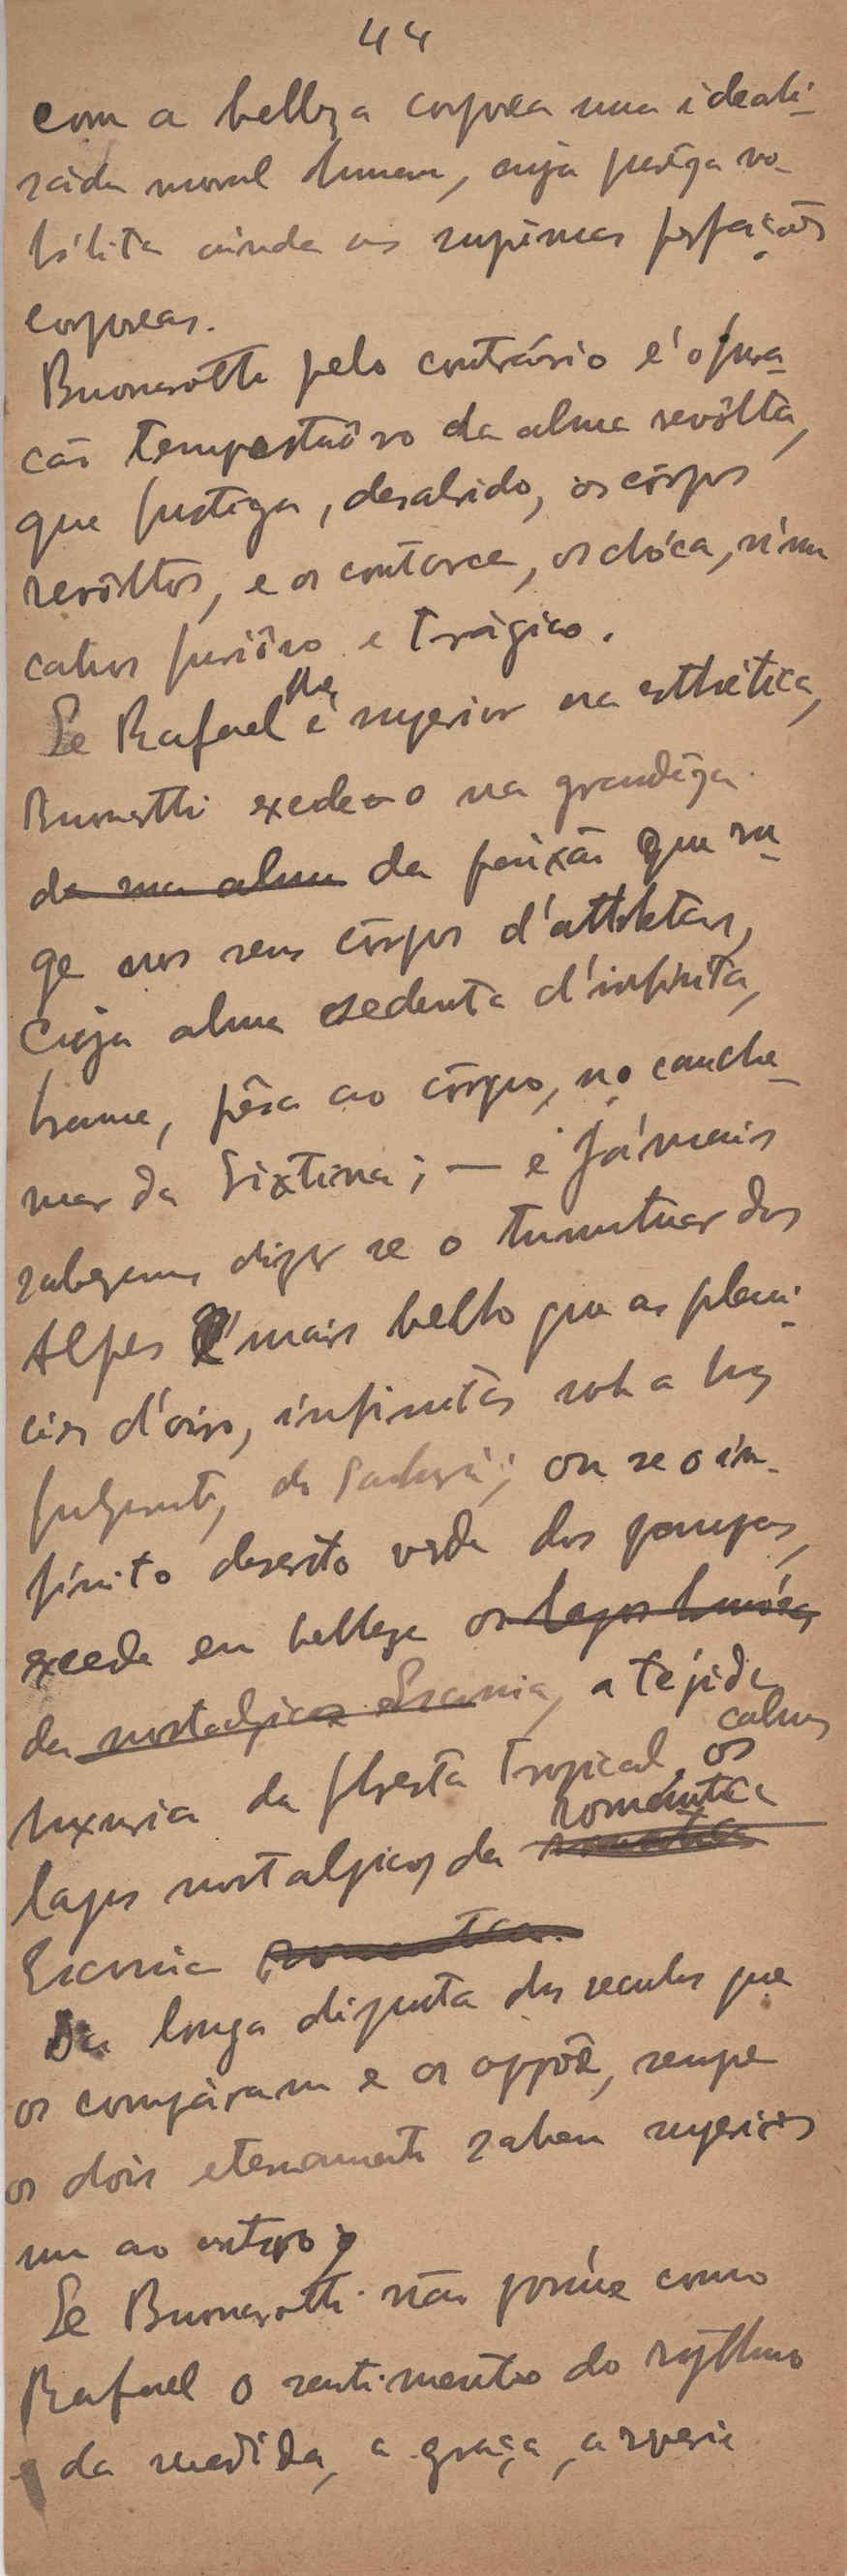 44
com a belleza corporea uma ideali-
zada moral humana, cuja pureza no-
bilita ainda as supremas perfeições
corporeas.
Buonarotti pelo contrário é o fura-
cão tempestuôso da alma revôlta,
que fustiga, desabrido, os côrpos
revôltos, e os contorce, os chóca, n'um
cahos furiôso e trágico.
Se Rafael lhe é superior na esthética,
Buonarotti excede-o na grandêza
da sua alma da paixão que ru-
ge nos seus côrpos d'athletas,
cuja alma sedenta d'infinito,
brame, pêsa ao côrpo, no
da Sixtina; — e jámais
saberemos dizer se o tumultuar dos
Alpes é mais bello que as plani-
cies d'oiro, infinitas sob a luz
fulgente, do Sahará; ou se o in-
finito deserto verde dos pampas,
excede em belleza os lagos
da nostalgica Escania, a tépida
luxuria da floresta tropical, os calmos
lagos nostalgicos da romântica
Escania romantica.
Da longa disputa dos seculos que
os comparam e os oppõe, sempre
os dois eternamente sahem superiores
um ao outro;
Se Buonarotti não possúe como
Rafael o sentimento do rythmo
da medida, a graça, a